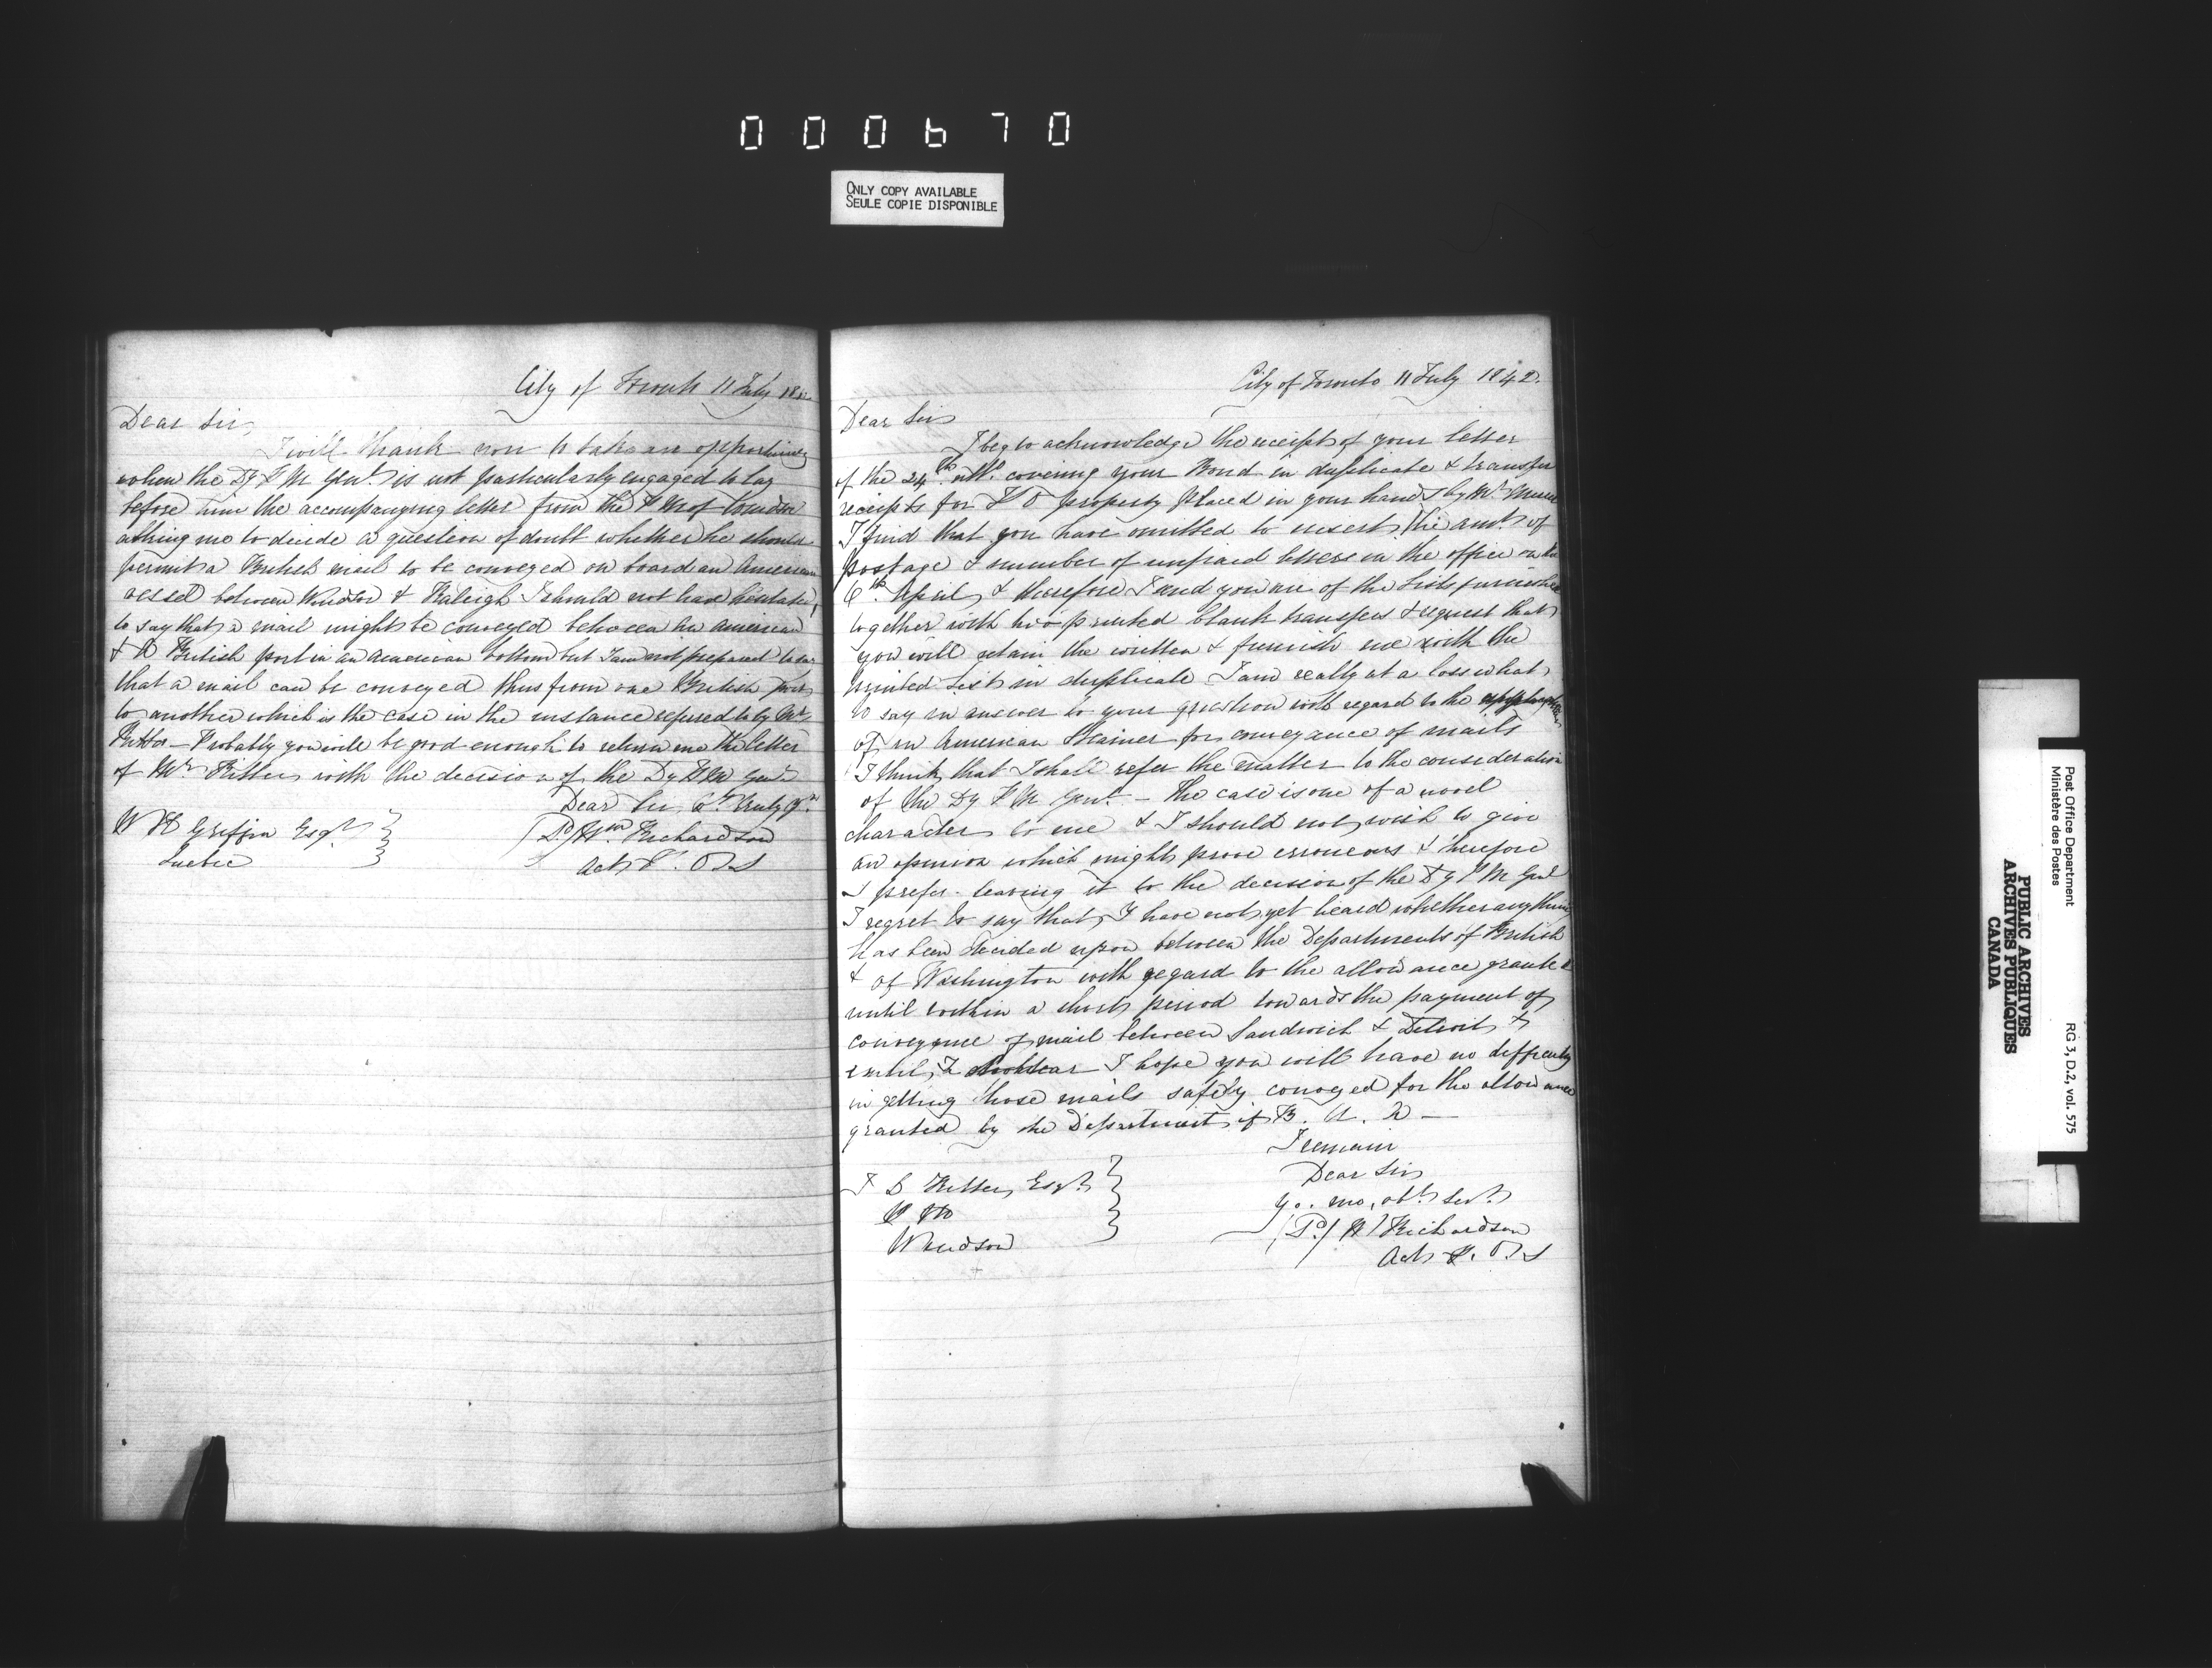 000670
ONLY COPY AVAILABLE
SEULE COPIE DISPONIBLE
City of Toronto 11 July 18
Dear Sir,
I will thank you to take an opportunity
when the Dy P M Genl. is not particularly engaged to lay
before him the accompanying letter from the P M of
asking me to decide a question of doubt whether he should
permit a British mail to be conveyed on board an American
vessel between Windsor & Raleigh I should not have hesitated
to say that a mail might be conveyed between an American
& a British port in an American bottom but I am not prepared to say
that a mail can be conveyed thus from one British port
to another which is the case in the instance refused to by Mr
Probably you will be good enough to return me the letter
of Mr. with the decision of the Dy P M Genl
Dear Sir, Truly
W H Griffin Esqr.
(Sd) Wm Richardson
Quebec
Actg P. O. S
City of Toronto 11 July 1842.
Dear Sir
I beg to acknowledge the receipt of your letter
of the 24th. ulto. covering your Bond in duplicate & transfer
receipts for P O property placed in your hands by Mr.
I find that you have omitted to insert the amt. of
postage & number of unpaid letters in the office on the
6th. April, & therefore I send you one of the Lists furnished
together with two printed blank transfers & request that
you will retain the written & furnish me with the
printed List in duplicate I am really at a loss what
to say in answer to your question with regard to the
of an American Steamer for conveyance of mails
I think that I shall refer the matter to the consideration
of the Dy P M Genl. - The case is one of a novel
character to me & I should not wish to give
an opinion which might prove erroneous & therefore
I prefer leaving it to the decision of the Dy P M Genl
I regret to say that I have not yet heard whether anything
has been decided upon between the Departments of British
& of Washington with regard to the allowance granted
until within a short period towards the payment of
conveyance of mail between Sandwich & Detroit &
until I do hear I hope you will have no difficulty
in getting those mails safely conveyed for the allowance
granted by the Department of B. A. —
I remain
Dear Sir
Yo. mo. obt. Servt.
Esqr.
P M
Windsor
(Sd) W Richardson
Actg P. O. S
Post Office Department
Ministère des Postes
RG 3, D.2, vol. 575
PUBLIC ARCHIVES
ARCHIVES PUBLIQUES
CANADA